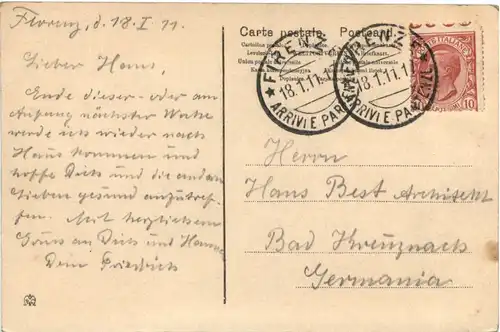 Florenz, d. 18. I 11.
Lieber Hans,
Ende dieser oder am
Anfang nächster Woche
werde ich wieder nach
Haus kommen und
hoffe Dich und die anderen
Lieben gesund anzutref-
fen. Mit herzlichem
Gruss an Dich und Hanne
Dein Friedrich
Carte postale. Postcard.
FIRENZE
18.1.11.
ARRIVI E PARTENZE
FIRENZE
18.1.11.1
ARRIVI E PARTENZE
10
Herrn
Hans Best Architekt
Bad Kreuznach
Germania